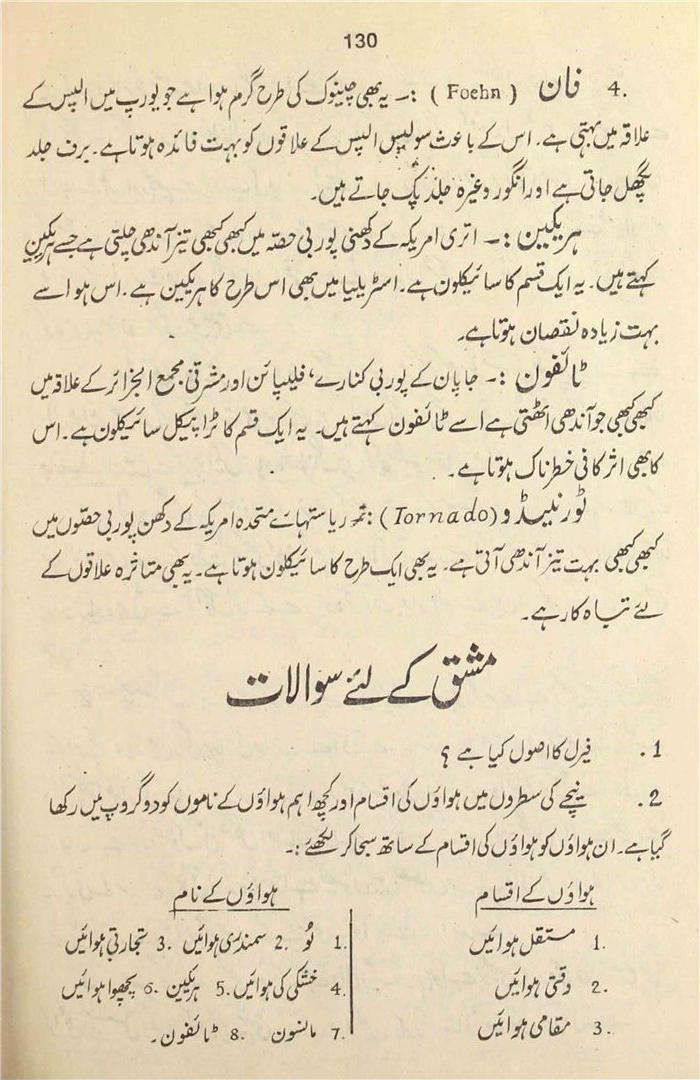 130
4. فان (Foehn) :۔ یہ بھی چینوک کی طرح گرم ہوا ہے جو یورپ میں الپس کے
علاقہ میں بہتی ہے۔ اس کے باعث سولیس الپس کے علاقوں کو بہت فائدہ ہوتا ہے۔ برف جلد
پگھل جاتی ہے اور انگور وغیرہ جلد پک جاتے ہیں۔
ہریکین :۔ اتری امریکہ کے دکھنی پوربی حصّہ میں کبھی کبھی تیز آندھی چلتی ہے جسے ہریکین
کہتے ہیں۔ یہ ایک قسم کا سائیکلون ہے۔ اسٹریلیا میں بھی اس طرح کا ہریکین ہے۔ اس ہوا سے
بہت زیادہ نقصان ہوتا ہے۔
ٹائفون :۔ جاپان کے پوربی کنارے، فلیپائن اور مشرقی مجمع الجزائر کے علاقہ میں
کبھی کبھی جو آندھی اٹھتی ہے اسے ٹائفون کہتے ہیں۔ یہ ایک قسم کا ٹراپیکل سائیکلون ہے۔ اس
کا بھی اثر کافی خطرناک ہوتا ہے۔
ٹورنیڈو (Tornado) :۔ ریاستہائے متحدہ امریکہ کے دکھن پوربی حصّوں میں
کبھی کبھی بہت تیز آندھی آتی ہے۔ یہ بھی ایک طرح کا سائیکلون ہوتا ہے۔ یہ بھی متاثرہ علاقوں کے
لئے تباہ کار ہے۔
مشق کے لئے سوالات
1. فیرل کا اصول کیا ہے؟
2. نیچے کی سطروں میں ہواؤں کی اقسام اور کچھ اہم ہواؤں کے ناموں کو دو گروپ میں رکھا
گیا ہے۔ ان ہواؤں کو ہواؤں کی اقسام کے ساتھ سجا کر لکھئے :۔
ہواؤں کے اقسام
1. مستقل ہوائیں
2. وقتی ہوائیں
3. مقامی ہوائیں
ہواؤں کے نام
1. لُو 2. سمندری ہوائیں 3. تجارتی ہوائیں
4. خشکی کی ہوائیں 5. ہریکین 6. پچھوا ہوائیں
7. مانسون 8. ٹائفون۔